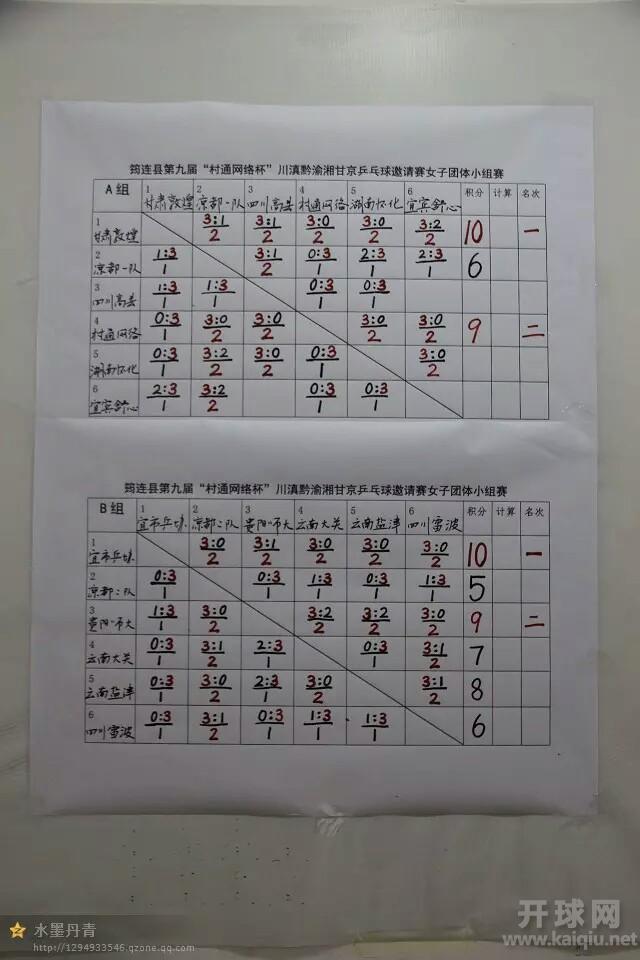 筠连县第九届“村通网络杯”川滇黔渝湘甘京乒乓球邀请赛女子团体小组赛
A 组 1 甘肃敦煌 2 京都一队 3 四川高县 4 村通网络 5 湖南怀化 6 宜宾舒心 积分 计算 名次
1 甘肃敦煌 3:1/2 3:1/2 3:0/2 3:0/2 3:2/2 10 一
2 京都一队 1:3/1 3:1/2 0:3/1 2:3/1 2:3/1 6
3 四川高县 1:3/1 1:3/1 0:3/1 0:3/1
4 村通网络 0:3/1 3:0/2 3:0/2 3:0/2 3:0/2 9 二
5 湖南怀化 0:3/1 3:2/2 3:0/2 0:3/1 3:0/2
6 宜宾舒心 2:3/1 3:2/2 0:3/1 0:3/1
筠连县第九届“村通网络杯”川滇黔渝湘甘京乒乓球邀请赛女子团体小组赛
B 组 1 宜市乒球 2 京都二队 3 贵阳市大 4 云南大关 5 云南盐津 6 四川雷波 积分 计算 名次
1 宜市乒球 3:0/2 3:1/2 3:0/2 3:0/2 3:0/2 10 一
2 京都二队 0:3/1 0:3/1 1:3/1 0:3/1 1:3/1 5
3 贵阳市大 1:3/1 3:0/2 3:2/2 3:2/2 3:0/2 9 二
4 云南大关 0:3/1 3:1/2 2:3/1 0:3/1 3:1/2 7
5 云南盐津 0:3/1 3:0/2 2:3/1 3:0/2 3:1/2 8
6 四川雷波 0:3/1 3:1/2 0:3/1 1:3/1 1:3/1 6
水墨丹青
http://1294933546.qzone.qq.com
开球网
www.kaiqiu.net